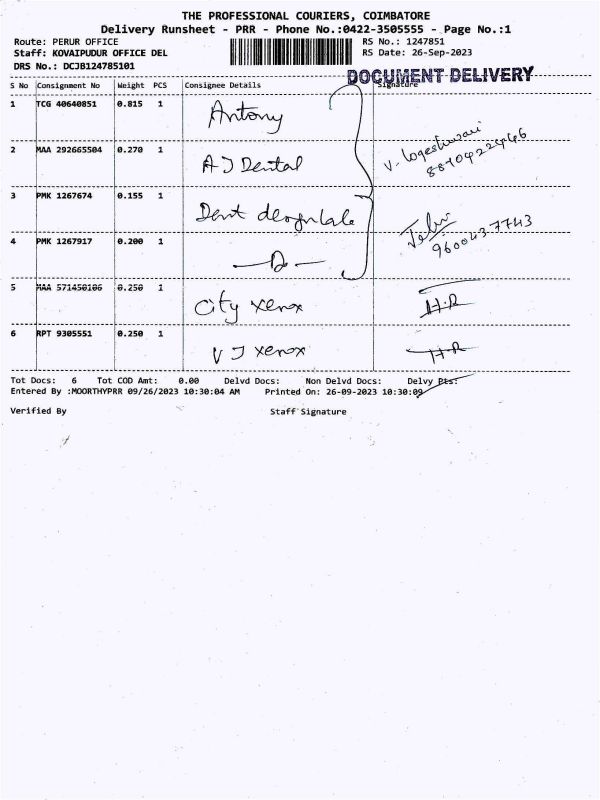 THE PROFESSIONAL COURIERS, COIMBATORE
Delivery Runsheet - PRR - Phone No.:0422-3505555 - Page No.:1
Route: PERUR OFFICE RS No.: 1247851
Staff: KOVAIPUDUR OFFICE DEL RS Date: 26-Sep-2023
DRS No.: DCJB124785101
DOCUMENT DELIVERY
S No Consignment No Weight PCS Consignee Details Signature
1 TCG 40640851 0.815 1 Antony
2 MAA 292665504 0.270 1 AJ Dental V. Logeshwari
3 PMK 1267674 0.155 1 Dent
4 PMK 1267917 0.200 1 9600437743
5 MAA 571450106 0.250 1 City xerox H.R
6 RPT 9305551 0.250 1 V J xerox H.R
Tot Docs: 6 Tot COD Amt: 0.00 Delvd Docs: Non Delvd Docs: Delvy Pts:
Entered By :MOORTHYPRR 09/26/2023 10:30:04 AM Printed On: 26-09-2023 10:30:09
Verified By Staff Signature